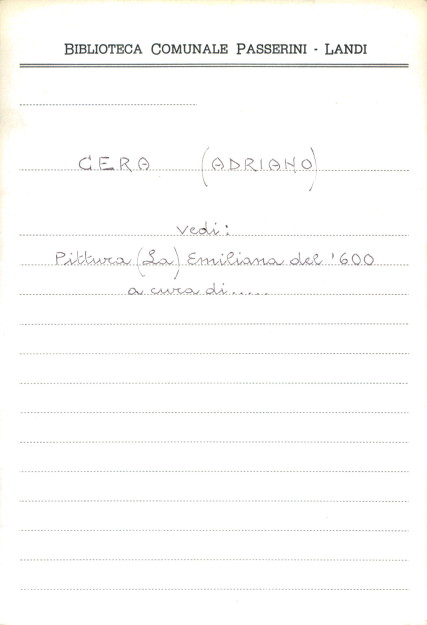 BIBLIOTECA COMUNALE PASSERINI - LANDI
CERA (ADRIANO)
vedi:
Pittura (La) Emiliana del '600
a cura di.....